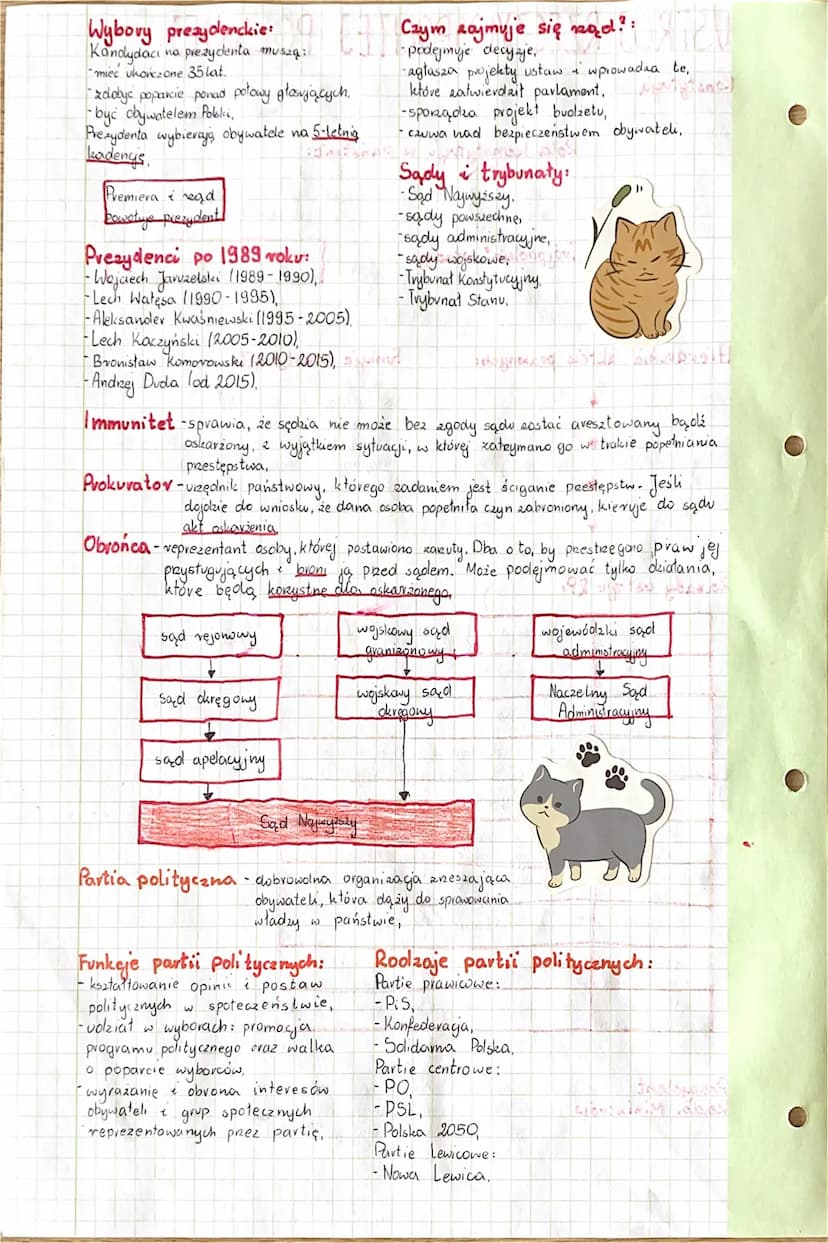 Wybory prezydenckie:
Kandydaci na prezydenta muszą:
- mieć ukończone 35 lat.
- zdobyć poparcie ponad połowy głosujących,
- być obywatelem Polski,
Prezydenta wybierają obywatele na 5-letnią
kadencję,
Premiera i rząd
powołuje prezydent
Prezydenci po 1989 roku:
- Wojciech Jaruzelski (1989-1990),
- Lech Wałęsa (1990-1995),
- Aleksander Kwaśniewski (1995-2005),
- Lech Kaczyński (2005-2010),
- Bronisław Komorowski (2010-2015),
- Andrzej Duda (od 2015),
Czym zajmuje się rząd?:
- podejmuje decyzje,
- zgłasza projekty ustaw i wprowadza te,
które zatwierdził parlament,
- sporządza projekt budżetu,
- czuwa nad bezpieczeństwem obywateli,
Sądy i trybunały:
- Sąd Najwyższy,
- sądy powszechne,
- sądy administracyjne,
- sądy wojskowe,
- Trybunał Konstytucyjny,
- Trybunał Stanu,
Immunitet - sprawia, że sędzia nie może bez zgody sądu zostać aresztowany bądź
oskarżony, z wyjątkiem sytuacji, w której zatrzymano go w trakcie popełniania
przestępstwa,
Prokurator - urzędnik państwowy, którego zadaniem jest ściganie przestępstw. Jeśli
dojdzie do wniosku, że dana osoba popełniła czyn zabroniony, kieruje do sądu
akt oskarżenia,
Obrońca - reprezentant osoby, której postawiono zarzuty. Dba o to, by przestrzegano praw jej
przysługujących i broni ją przed sądem. Może podejmować tylko działania,
które będą korzystne dla oskarżonego,
sąd rejonowy
wojskowy sąd
granizonowy
wojewódzki sąd
administracyjny
sąd okręgowy
wojskowy sąd
okręgowy
Naczelny Sąd
Administracyjny
sąd apelacyjny
Sąd Najwyższy
Partia polityczna - dobrowolna organizacja zrzeszająca
obywateli, która dąży do sprawowania
władzy w państwie,
Funkcje partii politycznych:
- kształtowanie opinii i postaw
politycznych w społeczeństwie,
- udział w wyborach: promocja
programu politycznego oraz walka
o poparcie wyborców,
- wyrażanie i obrona interesów
obywateli i grup społecznych
reprezentowanych przez partię,
Rodzaje partii politycznych:
Partie prawicowe:
- PiS,
- Konfederacja,
- Solidarna Polska,
Partie centrowe:
- PO,
- PSL,
- Polska 2050,
Partie Lewicowe:
- Nowa Lewica,